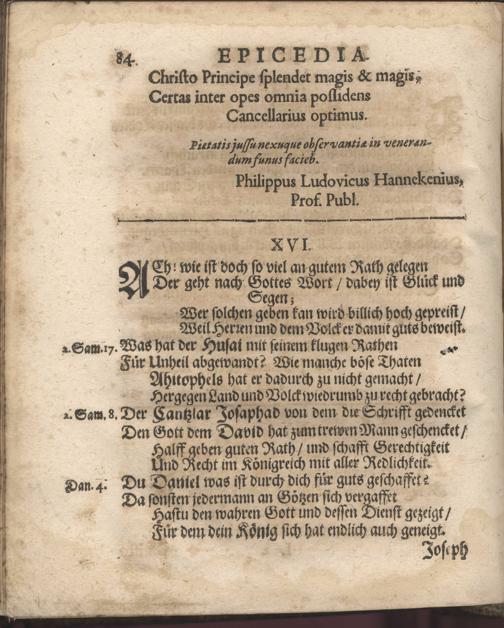 84. EPICEDIA.
Christo Principe splendet magis & magis,
Certas inter opes omnia possidens
Cancellarius optimus.
Pietatis jussu nexuque observantiæ in veneran-
dum funus facieb.
Philippus Ludovicus Hannekenius,
Prof. Publ.
XVI.
ACh! wie ist doch so viel an gutem Rath gelegen
Der geht nach Gottes Wort / dabey ist Glück und
Segen;
Wer solchen geben kan wird billich hoch gepreist /
Weil Herren und dem Volck er damit guts beweist.
2. Sam. 17. Was hat der Husai mit seinem klugen Rathen
Für Unheil abgewandt? Wie manche böse Thaten
Ahitophels hat er dadurch zu nicht gemacht /
Hergegen Land und Volck wiedrumb zu recht gebracht?
2. Sam. 8. Der Cantzlar Josaphad von dem die Schrifft gedencket
Den Gott dem David hat zum trewen Mann geschencket /
Halff geben guten Rath / und schafft Gerechtigkeit
Und Recht im Königreich mit aller Redlichkeit.
Dan. 4. Du Daniel was ist durch dich für guts geschaffet?
Da sonsten jedermann an Götzen sich vergaffet
Hastu den wahren Gott und dessen Dienst gezeigt /
Für dem dein König sich hat endlich auch geneigt.
Joseph